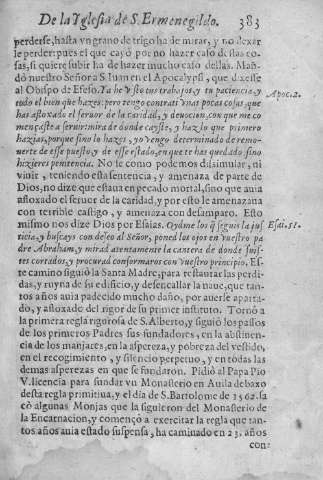 De la Yglesia de S. Ermenegildo. 383
perderse, hasta vn grano de trigo ha de mirar, y no dexar
le perder: pues el que cayò por no hazer caso destas co
sas, si quiere subir ha de hazer mucho caso dellas. Man
dó nuestro Señor a S. Iuan en el Apocalypsi, que dixesse
al Obispo de Efeso. Ya he visto tus trabajos, y tu paciencia, y
todo el bien que hazes: pero tengo contrati vnas pocas cosas, que
has afloxado el feruor de la caridad, y deuocion, con que me co
mençaste a seruir: mira de donde cayste, y haz lo que primero
hazias, porque sino lo hazes, yo vengo determinado de remo-
uerte de esse puesto, y de esse estado, en que te has quedado sino
hizieres penitencia. No sè como podemos dissimular, ni
viuir, teniendo esta sentencia, y amenaza de parte de
Dios, no dize que estaua en pecado mortal, sino que auia
afloxado el feruor de la caridad, y por esto le amenazaua
con terrible castigo, y amenaza con desamparo. Esto
mismo nos dize Dios por Esaias. Oydme los q̃ seguis la jus
ticia, y buscays con deseo al Señor, poned los ojos en vuestro pa
dre Abraham, y mirad atentamente la cantera de donde fuis-
tes cortados, y procurad conformaros con vuestro principio. Es-
te camino siguiò la Santa Madre, para restaurar las perdi-
das, y ruyna de su edificio, y desencallar la naue, que tan-
tos años auia padecido mucho daño, por auerse aparta-
do, y afloxado del rigor de su primer instituto. Tornò a
la primera regla rigorosa de S. Alberto, y siguió los passos
de los primeros Padres sus fundadores, en la abstinen-
cia de los manjares, en la aspereza, y pobreza del vestido,
en el recogimiento, y silencio perpetuo, y en todas las
demas asperezas en que se fundaron. Pidiò al Papa Pio
V. licencia para fundar vn Monasterio en Auila debaxo
desta regla primitiua, y el dia de S. Bartolome de 1562. sa
cò algunas Monjas que la siguieron del Monasterio de
la Encarnacion, y començó a exercitar la regla que tan-
tos años auia estado suspensa, ha caminado en 23. años
con-
Apoc. 2.
Esai. 51.